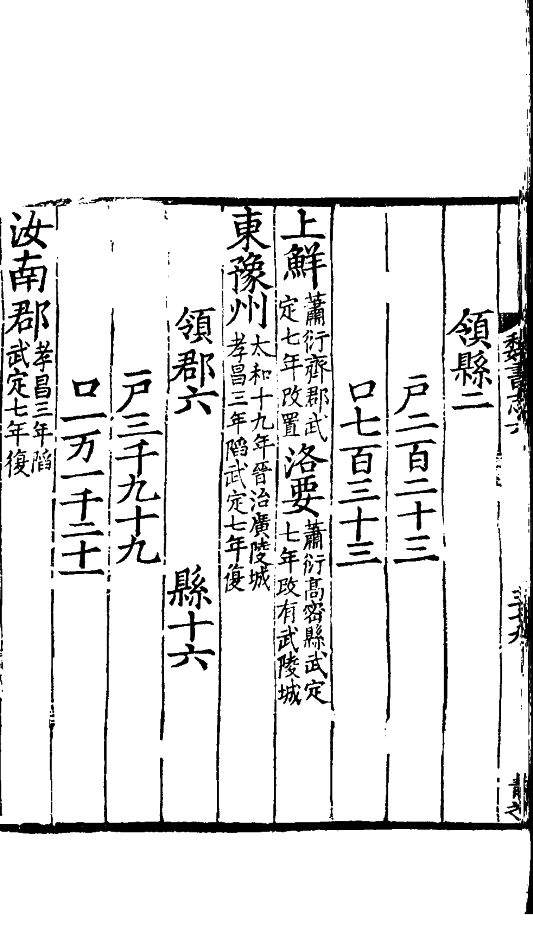 魏書志六
領縣二
戶二百二十三
口七百三十三
上鮮蕭衍齊郡武定七年改置洛要蕭衍高密縣武定七年改有武陵城
東豫州太和十九年晉治廣陵城孝昌三年䧟武定七年復
領郡六縣十六
戶三千九十九
口一万一千二十一
汝南郡孝昌三年䧟武定七年復